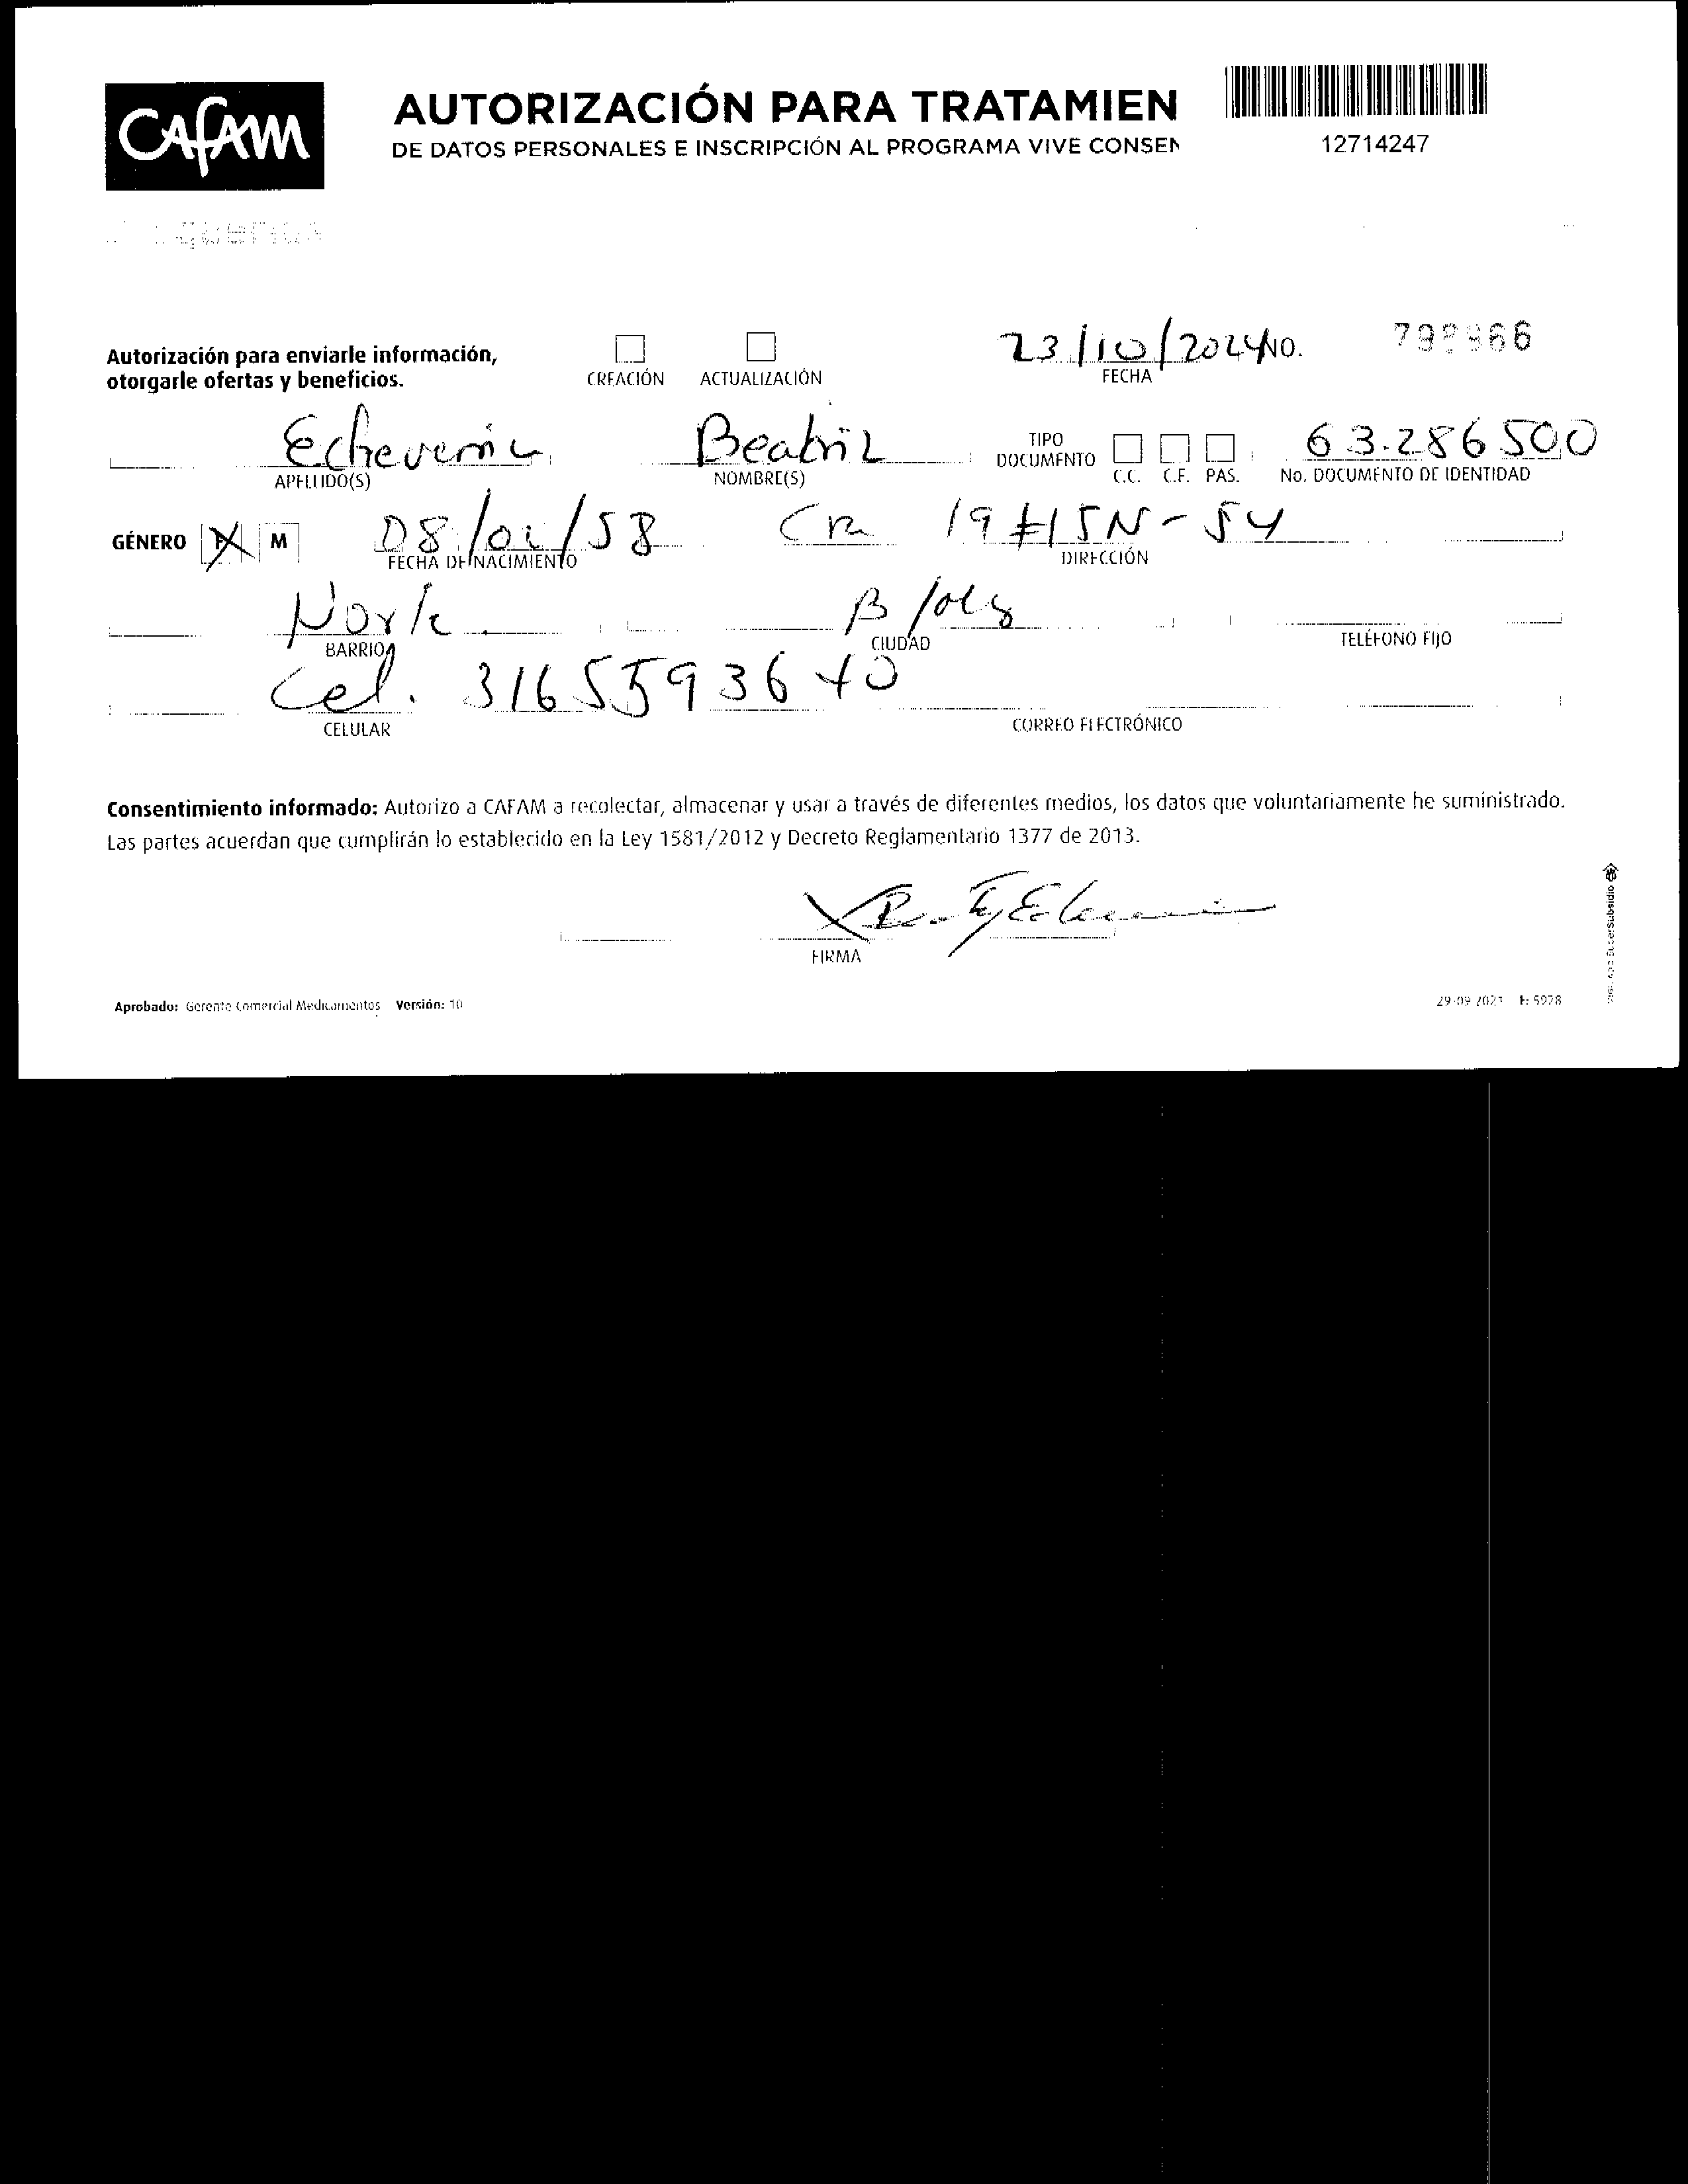 CAFAM
AUTORIZACIÓN PARA TRATAMIEN
DE DATOS PERSONALES E INSCRIPCIÓN AL PROGRAMA VIVE CONSEN
12714247
Autorización para enviarle información,
otorgarle ofertas y beneficios.
CREACIÓN ACTUALIZACIÓN
23/10/2024 NO.
FECHA
Echeverria Beatriz
APELLIDO(S) NOMBRE(S)
TIPO
DOCUMENTO
C.C. C.E. PAS.
63.286500
No. DOCUMENTO DE IDENTIDAD
GÉNERO F M
08/01/58
FECHA DE NACIMIENTO
Cra 19 #15N-54
DIRECCIÓN
Norte
BARRIO
CIUDAD
TELÉFONO FIJO
Cel. 3165593640
CELULAR
CORREO ELECTRÓNICO
Consentimiento informado: Autorizo a CAFAM a recolectar, almacenar y usar a través de diferentes medios, los datos que voluntariamente he suministrado.
Las partes acuerdan que cumplirán lo establecido en la Ley 1581/2012 y Decreto Reglamentario 1377 de 2013.
FIRMA
Aprobado: Gerente Comercial Medicamentos Versión: 10
29-09-2021 F: 5928
SuperSubsidio